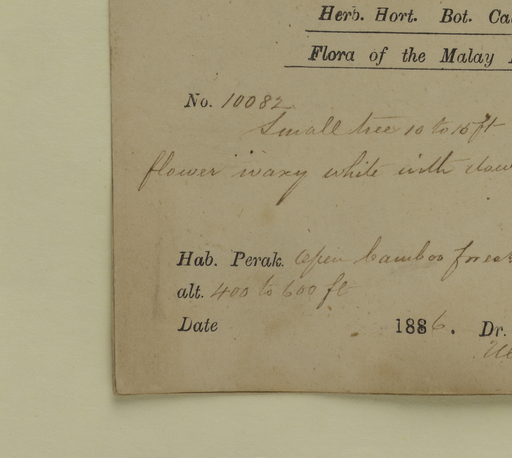 Herb. Hort. Bot. Ca
Flora of the Malay
No. 10082
Small tree 10 to 15 ft
flower waxy white with
Hab. Perak. Open bamboo forest
alt. 400 to 600 ft
Date 1886. Dr.